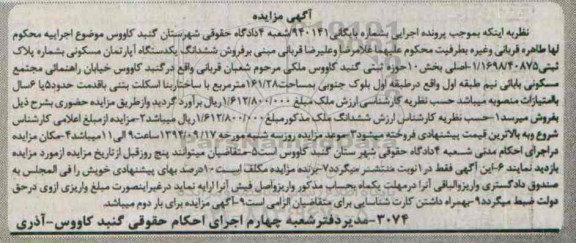 آگهی مزایده
نظریه اینکه بموجب پرونده اجرایی بشماره بایگانی ۹۴۰۱۴۱شعبه ۴دادگاه حقوقی شهرستان گنبد کاووس موضوع اجراییه محکوم
لها طاهره قربانی وغیره بطرفیت محکوم علیهما غلامرضا وعلیرضا قربانی مبنی برفروش ششدانگ یکدستگاه آپارتمان مسکونی بشماره پلاک
ثبتی۱/۱۱۶۹۸/۴۰۸۷۵-اصلی بخش ۱۰حوزه ثبتی گنبد کاووس ملکی مرحوم شعبان قربانی واقع درگنبد کاووس خیابان راهنمائی مجتمع
مسکونی بابائی نیم طبقه اول واقع درطبقه اول بلوک جنوبی بمساحت۱۶۱/۲۸مترمربع با ساختاربنا اسکلت بتنی باقدمت حدود۵یا ۶سال
باامتیازات منصوبه میباشد حسب نظریه کارشناسی ارزش ملک مبلغ ۱/۶۱۲/۸۰۰/۰۰۰ریال برآورد گردید وازطریق مزایده حضوری بشرح ذیل
بفروش میرسد۱-حسب نظریه کارشناس ارزش ششدانگ ملک مذکورمبلغ ۱/۶۱۲/۸۰۰/۰۰۰ریال میباشد۲-مزایده ازمبلغ اعلامی کارشناس
شروع وبه بالاترین قیمت پیشنهادی فروخته میشود۳-موعد مزایده روزسه شنبه مورخه ۱۳۹۴/۰۹/۱۷ساعت۹ الی۱۱میباشد۴-مکان مزایده
دراجرای احکام مدنی شعبه ۴دادگاه حقوقی شهرستان گنبد کاووس است۵-متقاضیان میتوانند پنج روزقبل ازتاریخ مزایده ازمورد مزایده
بازدید نمایند۶-این آگهی فقط در۱نوبت منتشر میگردد۷-برنده مزایده مکلف است۱۰درصد بهای پیشنهادی خویش را فی المجلس به
صندوق دادگستری واریزوالباقی آنرا درمهلت یکماه بحساب مذکور واریزواصل فیش آنرا ارایه نماید درغیراینصورت مبلغ واریزی ازوی درحق
دولت ضبط میگردد۸-بهمراه داشتن کارت شناسایی برای متقاضیان الزامی است۹-آگهی مزایده برای بار دوم میباشد.
۳۰۷۴-مدیردفترشعبه چهارم اجرای احکام حقوقی گنبد کاووس-آذری